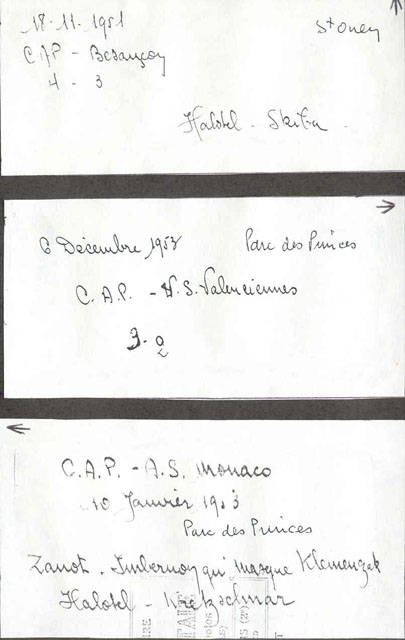 18.11.1951
St Ouen
C A P - Besançon
4 - 3
Halotel - Skiba
6 Décembre 1953 Parc des Princes
C. A. P. - U.S. Valenciennes
3. 2
C. A. P. - A. S. Monaco
10 Janvier 1953
Parc des Princes
Zanot - qui masque Klemenczak
Halotel - Kretzschmar